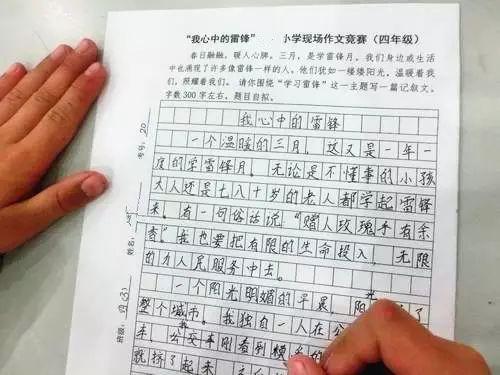 “我心中的雷锋” 小学现场作文竞赛（四年级）
春日融融，暖人心脾。三月，是学雷锋月。我们身边或生活
中也涌现了许多像雷锋一样的人。他们犹如一缕缕阳光，温暖着我
们，照耀着我们。请你围绕“学习雷锋”这一主题写一篇记叙文。
字数300字左右。题目自拟。
我心中的雷锋
一个温暖的三月，这又是一年一
度的学雷锋月。无论是不懂事的小孩
大人还是七八十岁的老人都学起雷锋
来。有一句俗话说：“赠人玫瑰手有余
香。”我也要把有限的生命投入，无限
的为人民服务中去。
一个阳光明媚的早晨，阳光了
整个城市。我独自一人在公
来，公交车刚看到
就挤了起来
考号：20
姓名：
班级：四(3)